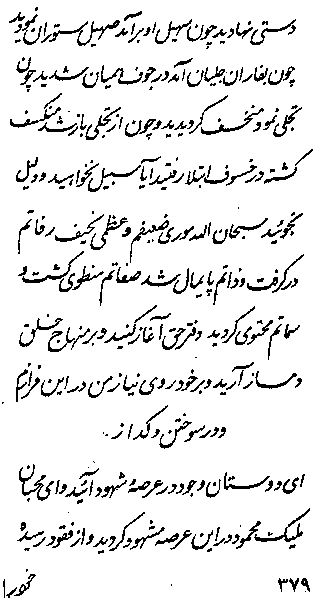 دستی نهادید چون سهیل او برآمد صهیل ستوران نمودید
چون بفاران جلیان آمد در جوف همیان شدید چون
تجلی نمود منخسف کردیدید و چون از تجلی باز شد منکسف
کشته در خسوف ابتلا رفتید آیا سبیل نخواهید و دلیل
نجوئید سبحان الله موری ضعیفم و عظمی نحیف رفاتم
در کرفت و ذاتم پایمال شد صفاتم منطوی کشت و
سماتم محتوی کردید دفتر حق آغاز کنید و بر منهاج خلق
دمساز آرید و بر خود روی نیاز من در این فرازم
و در سوختن و کداز
ای دوستان وجود در عرصهٔ شهود آئید و ای محبان
ملیک محمود در این عرصه مشهود کردید و از فقود رسیده
۳۷۹